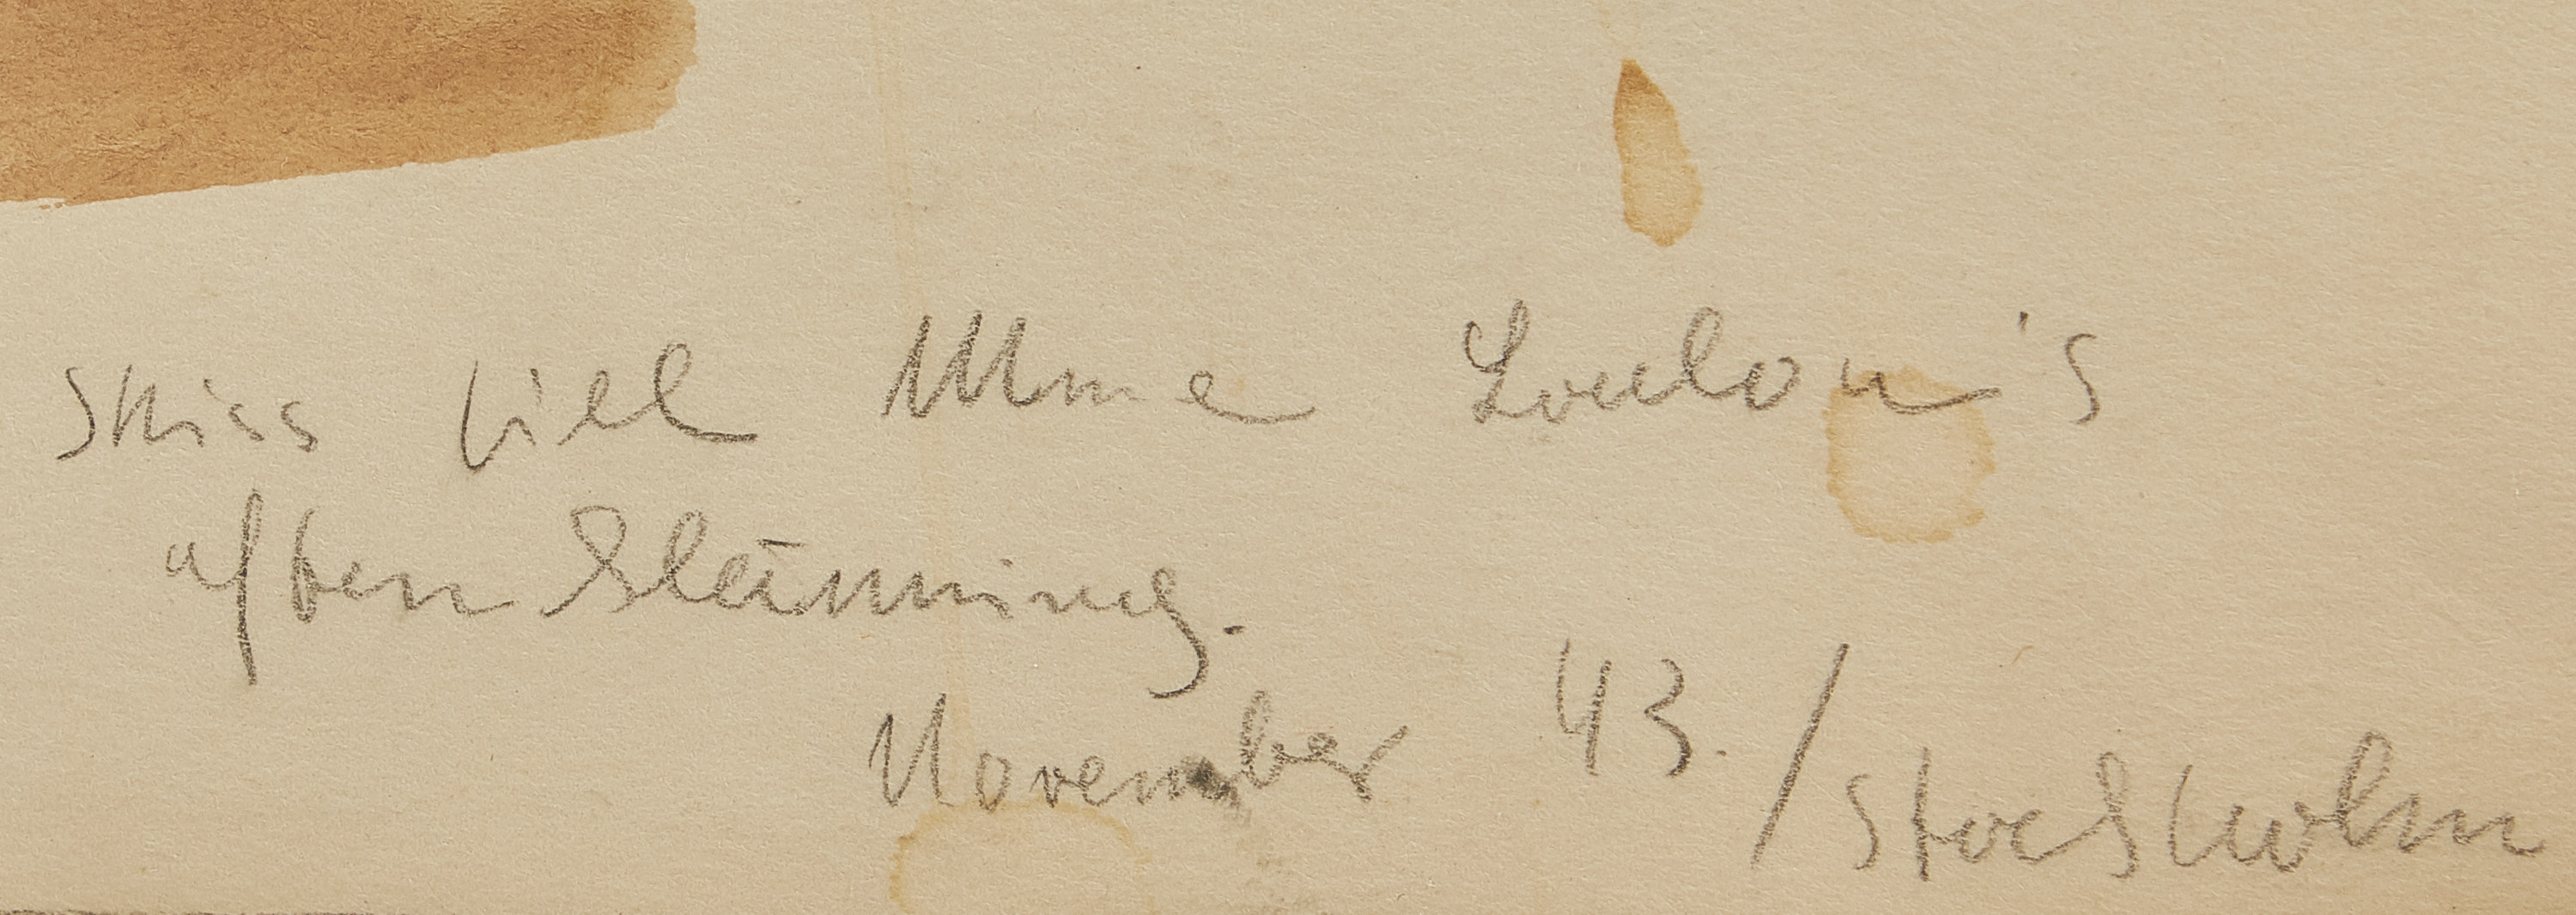 Skiss till Mme Loulou's
aftonklänning.
November 43./Stockholm